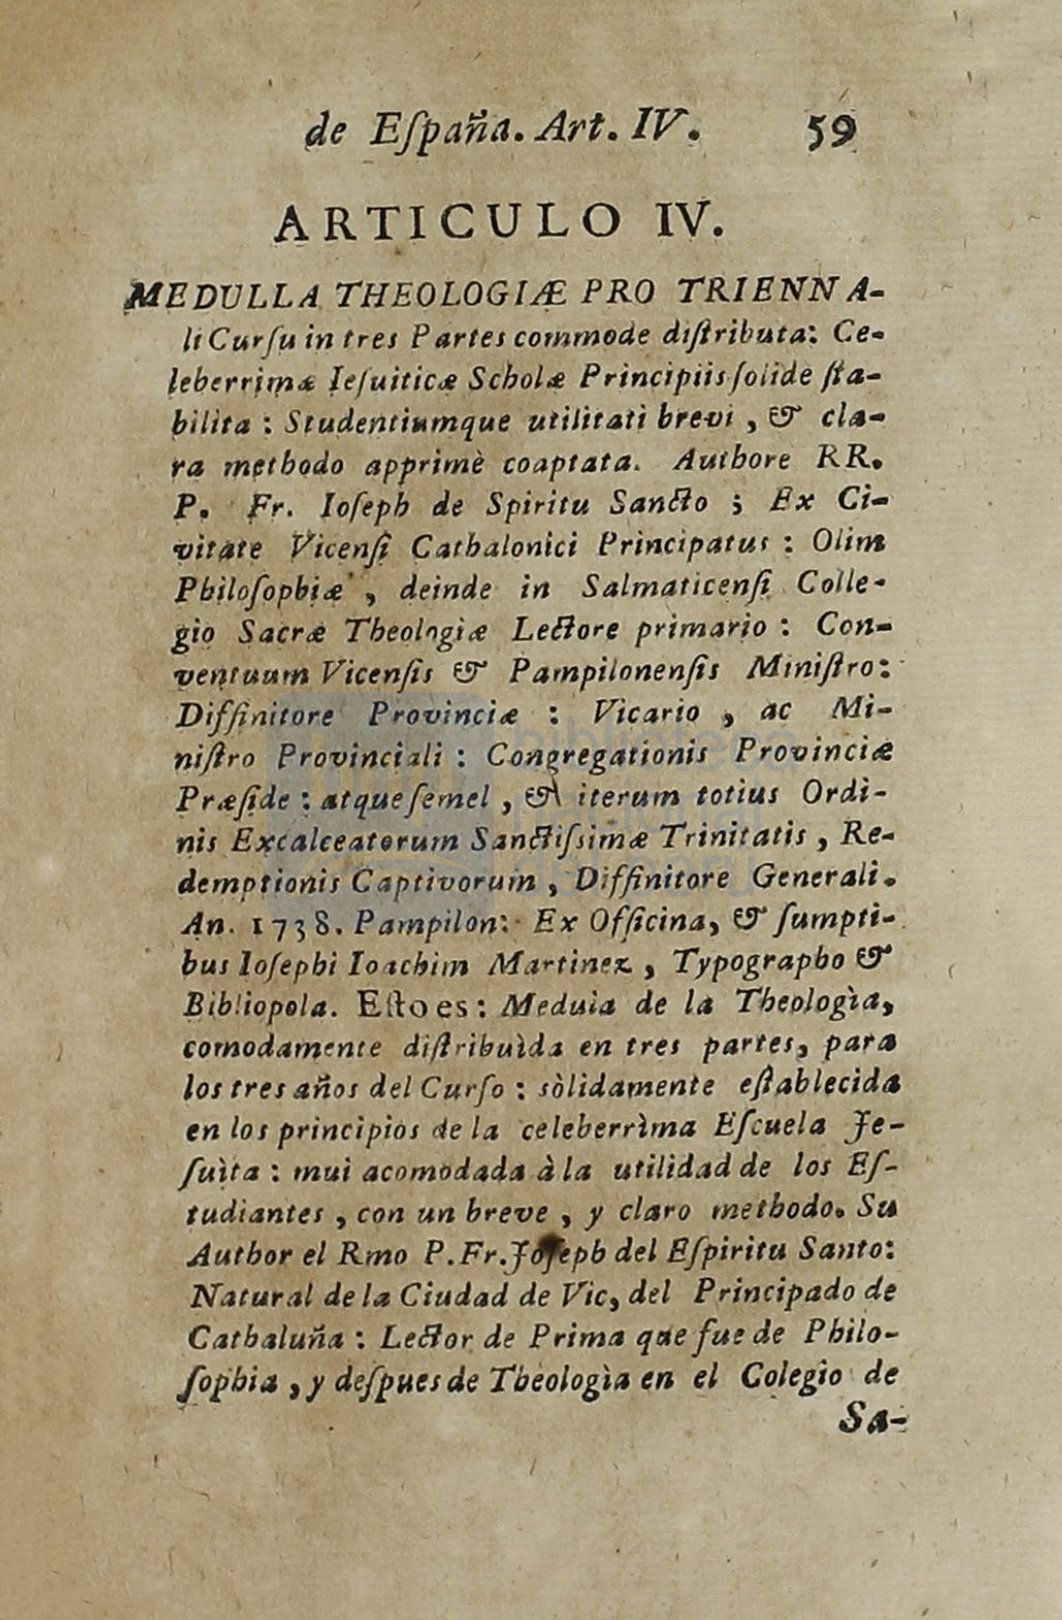 de Eſpaña. Art. IV. 59
ARTICULO IV.
MEDULLA THEOLOGIÆ PRO TRIENNA-
li Curſu in tres Partes commode diſtributa: Ce-
leberrimæ Ieſuiticæ Scholæ Principiis ſolide ſta-
bilita : Studentiumque utilitati brevi , & cla-
ra methodo apprimè coaptata. Authore RR.
P. Fr. Ioſeph de Spiritu Sancto ; Ex Ci-
vitate Vicenſi Cathalonici Principatus : Olim
Philoſophiæ , deinde in Salmaticenſi Colle-
gio Sacræ Theologiæ Lectore primario : Con-
ventuum Vicenſis & Pampilonenſis Miniſtro:
Diffinitore Provinciæ : Vicario , ac Mi-
niſtro Provinciali : Congregationis Provinciæ
Præſide : atque ſemel , & iterum totius Ordi-
nis Excalceatorum Sanctiſsimæ Trinitatis , Re-
demptionis Captivorum , Diffinitore Generali.
An. 1738. Pampilon: Ex Officina, & ſumpti-
bus Ioſephi Ioachim Martinez , Typographo &
Bibliopola. Eſto es : Medula de la Theologìa,
comodamente diſtribuìda en tres partes, para
los tres años del Curſo : sòlidamente eſtablecida
en los principios de la celeberrìma Eſcuela Je-
ſuìta : mui acomodada à la utilidad de los Eſ-
tudiantes , con un breve , y claro methodo. Su
Author el Rmo P. Fr. Joſeph del Eſpiritu Santo:
Natural de la Ciudad de Vic, del Principado de
Cathaluña : Lector de Prima que fue de Philo-
ſophia , y deſpues de Theologìa en el Colegio de
Sa-